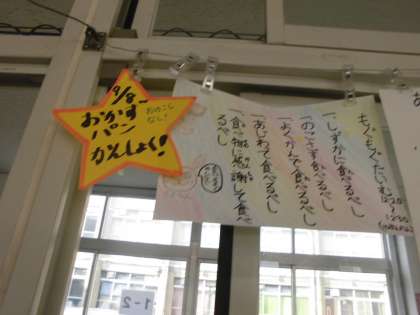 9/8
おかず
パン
かんしょく!
おのこし
なし!
もぐもぐたいむは
一、しずかに食べるべし
一、のこさず食べるべし
一、よくかんで食べるべし
一、あじわって食べるべし
一、食べ物に感謝して食べ
るべし
1-2